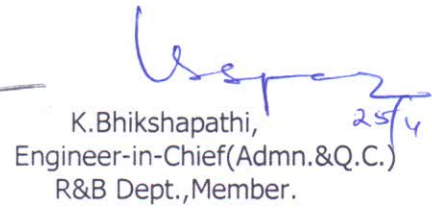 25/4
K.Bhikshapathi,
Engineer-in-Chief(Admn.&Q.C.)
R&B Dept.,Member.